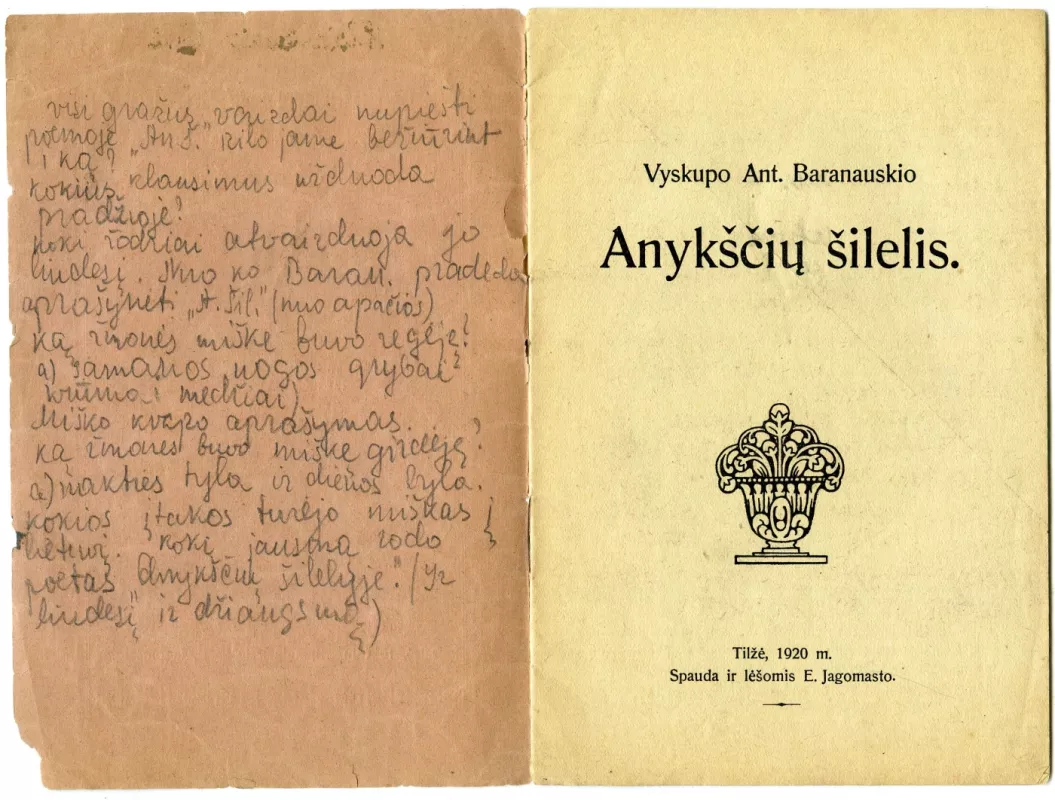 visi gražus vaizdai nupiešti
poemoje „An.š." kilo jame bežiūrint
į ką?
kokius klausimus užduoda
pradžioje?
koki žodžiai atvaizduoja jo
liudesį. Nuo ko Baran. pradeda
aprašynėti „A. šil." (nuo apačios)
ką žmonės miške buvo regėję?
a) samanos uogos grybai
krūmai medžiai)
Miško kvapo aprašymas.
ką žmonės buvo miške girdėję?
a) nakties tyla ir dienos byla.
kokios įtakos turėjo miškas į
lietuvį. kokį jausmą rodo
poetas Anykščių šilelyje." (Ir
liudesį ir džiaugsmą)
Vyskupo Ant. Baranauskio
Anykščių šilelis.
Tilžė, 1920 m.
Spauda ir lėšomis E. Jagomasto.